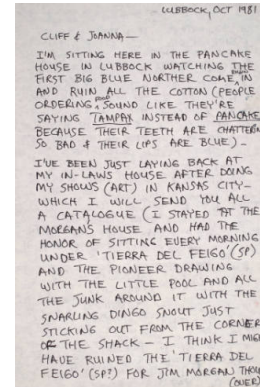 LUBBOCK, OCT 1981
CLIFF & JOANNA—
I'M SITTING HERE IN THE PANCAKE
HOUSE IN LUBBOCK WATCHING THE
FIRST BIG BLUE NORTHER COME IN
AND RUIN ALL THE COTTON (PEOPLE
ORDERING SOUND LIKE THEY'RE
SAYING TAMPAX INSTEAD OF PANCAKE
BECAUSE THEIR TEETH ARE CHATTERIN
SO BAD & THEIR LIPS ARE BLUE)—
I'VE BEEN JUST LAYING BACK AT
MY IN-LAWS HOUSE AFTER DOING
MY SHOWS (ART) IN KANSAS CITY—
WHICH I WILL SEND YOU ALL
A CATALOGUE (I STAYED AT THE
MORGAN'S HOUSE AND HAD THE
HONOR OF SITTING EVERY MORNING
UNDER 'TIERRA DEL FEIGO' (SP)
AND THE PIONEER DRAWING
WITH THE LITTLE POOL AND ALL
THE JUNK AROUND IT WITH THE
SNARLING DINGO SNOUT JUST
STICKING OUT FROM THE CORNER
OF THE SHACK — I THINK I MIGH
HAVE RUINED THE 'TIERRA DEL
FEIGO' (SP?) FOR JIM MORGAN THOU
(OVER)